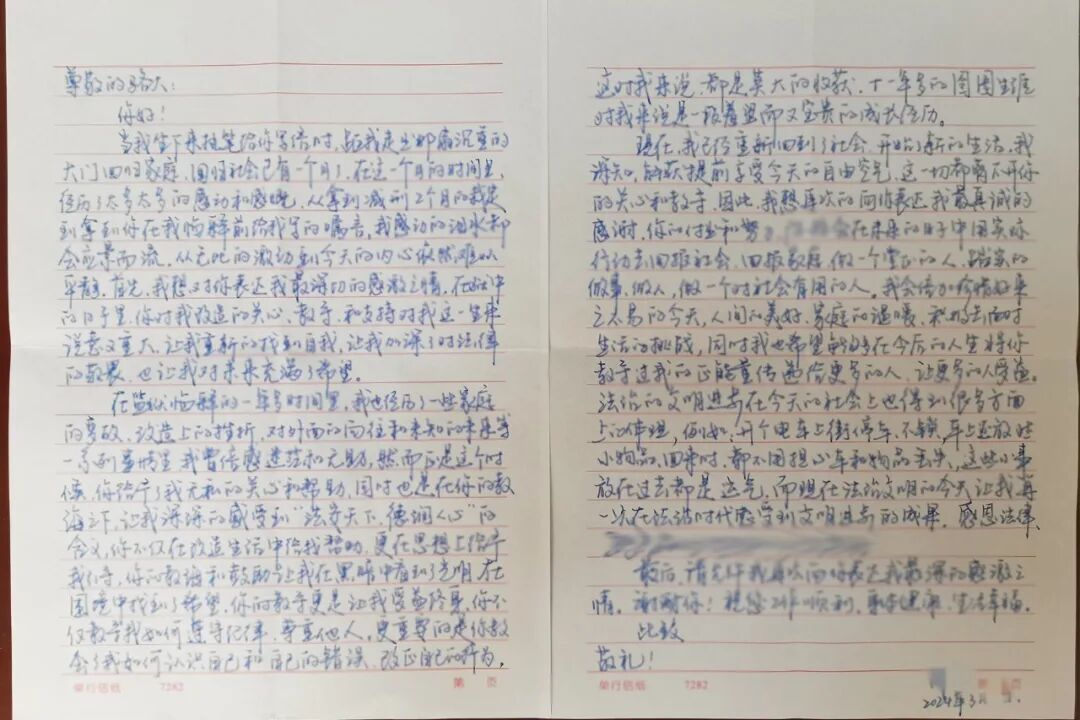 尊敬的骆大：
你好！
当我坐下来执笔给你写信时，距我走出那扇沉重的
大门回归家庭、回归社会已有一个月了，在这一个月的时间里，
经历了太多太多的感动和感慨，从拿到减刑2个月的裁定
到拿到你在我临释前给我写的嘱音，我感动的泪水都
会应景而流，从彼此的激动到今天的内心依然难以
平静。首先，我想对你表达我最深切的感激之情，在狱中
的日子里，你对我改造的关心、教导、和支持对我这一生来
说意义重大，让我重新的找到自我，让我加深了对法律
的敬畏，也让我对未来充满了希望。
在监狱临释的一年多时间里，我也经历了一些家庭
的变故、改造上的挫折，对外面的向往和未知的未来等
一系列事情里我曾倍感迷茫和无助，然而正是这个时
候，你给予了我无私的关心和帮助，同时也是在你的教
诲之下，让我深深的感受到“法安天下，德润人心”的
含义，你不仅在改造生活中给我帮助，更在思想上给予
我引导，你的教诲和鼓励让我在黑暗中看到了光明，在
困境中找到了希望，你的教导更是让我受益终身，你不
仅教导我如何遵守纪律、尊重他人，更重要的是你教
会了我如何认识自己和自己的错误、改正自己的行为，
单行信纸 7282 第 页
这对我来说，都是莫大的收获，十一年多的囹圄生涯
对我来说是一段羞愧而又宝贵的成长经历。
现在，我已经重新回到了社会，开始了新的生活，我
深知，能获提前享受今天的自由空气，这一切都离不开你
的关心和教导，因此，我想再次的向你表达我最真诚的
感谢，你的付出和努 在未来的日子中用实际
行动去回报社会、回报家庭，做一个堂正的人，踏实的
做事、做人，做一个对社会有用的人。我会倍加珍惜好来
之不易的今天，人间的美好、家庭的温暖，积极去面对
生活的挑战，同时我也希望能够在今后的人生将你
教导过我的正能量传递给更多的人，让更多的人受益。
法治的文明进步在今天的社会上也得到很多方面
上的体现，例如：开个电车上街停车、不锁，车上还放些
小物品，回来时，都不用担心车和物品丢失，这些小事
放在过去都是运气，而现在法治文明的今天，让我再
一次在法治时代感受到文明进步的成果，感恩法律、
最后，请允许我再次向你表达我最深的感激之
情，谢谢你！祝您工作顺利，身体健康，生活幸福。
此致
敬礼！
单行信纸 7282 第 页
2024年3月